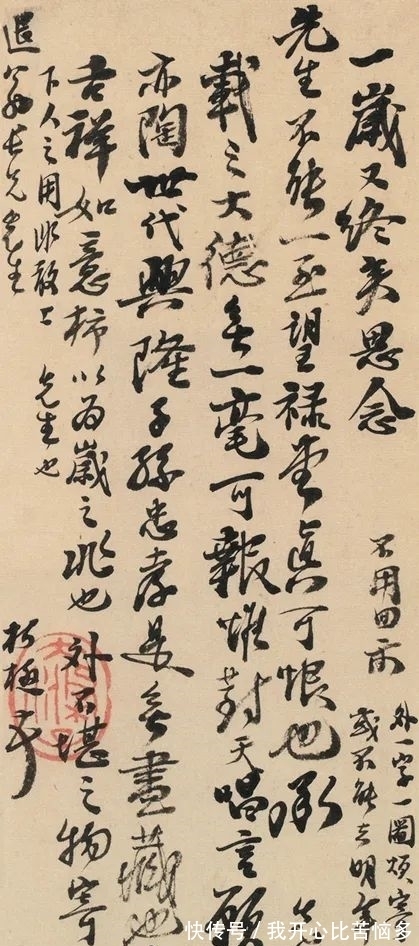 一歲又終矣思念
先生不能一至望祿堂真可恨也承
載之大德無一毫可報惟對天唱言願
亦陶世代興隆子孫忠孝是無盡藏也
吉祥如意柿以為歲之兆也外不堪之物寄
下人之用非敢上 先生也
退翁長兄先生
朽極
不用回示
外一字一圖煩寄
或不能去明年
快传号/我开心比苦恼多